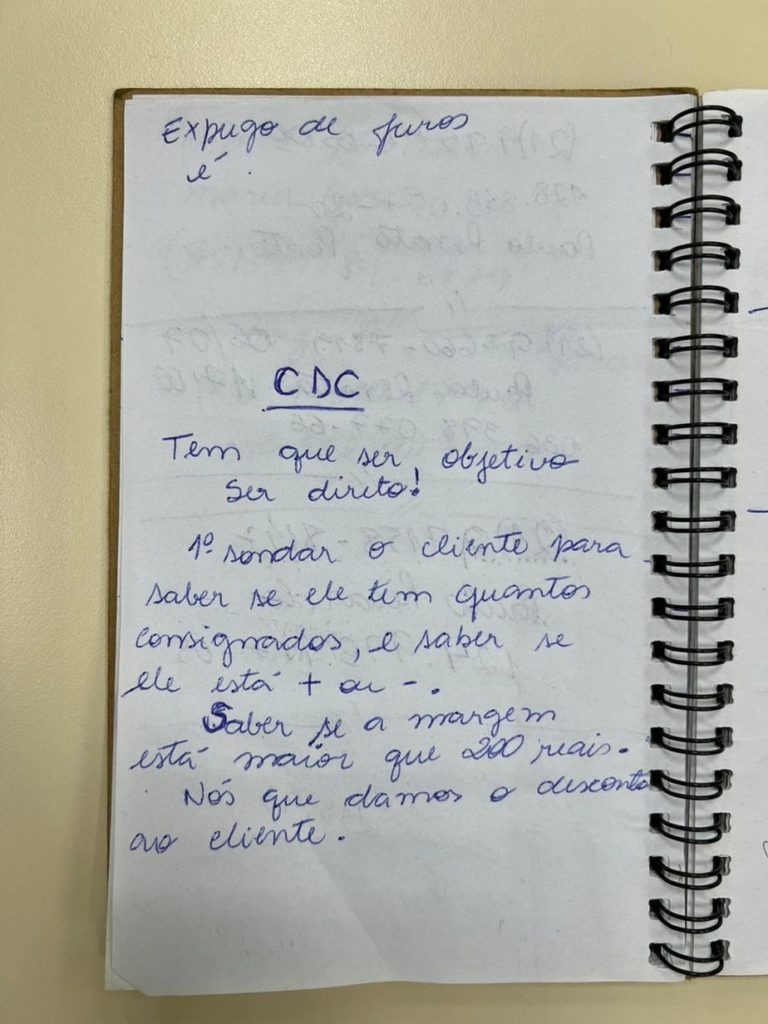 Expugo de juros
é.
CDC
Tem que ser, objetivo
Ser direto!
1º sondar o cliente para
saber se ele tem quantos
consignados, e saber se
ele está + ou -.
Saber se a margem
está maior que 200 reais.
Nós que damos o desconto
ao cliente.